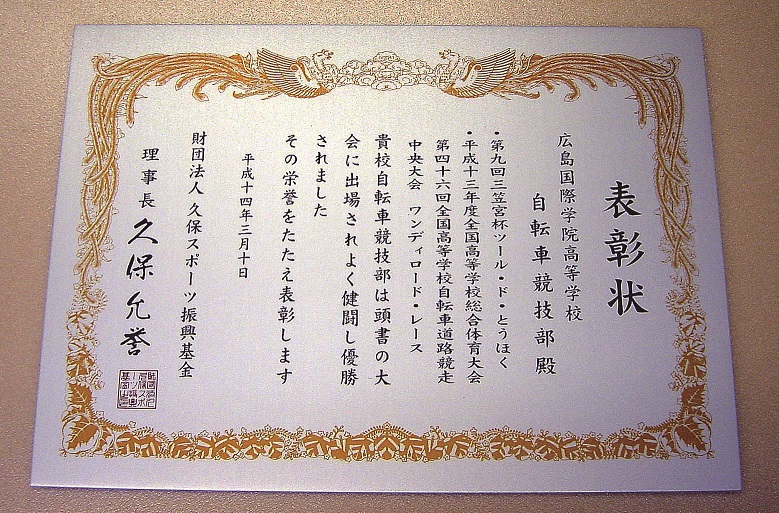 表彰状
広島国際学院高等学校
自転車競技部殿
・第九回三笠宮杯ツール・ド・とうほく
・平成十三年度全国高等学校総合体育大会
第四十六回全国高等学校自転車道路競走
中央大会　ワンディロード・レース
貴校自転車競技部は頭書の大
会に出場されよく健闘し優勝
されました
その栄誉をたたえ表彰します
平成十四年三月十日
財団法人 久保スポーツ振興基金
理事長 久保允誉